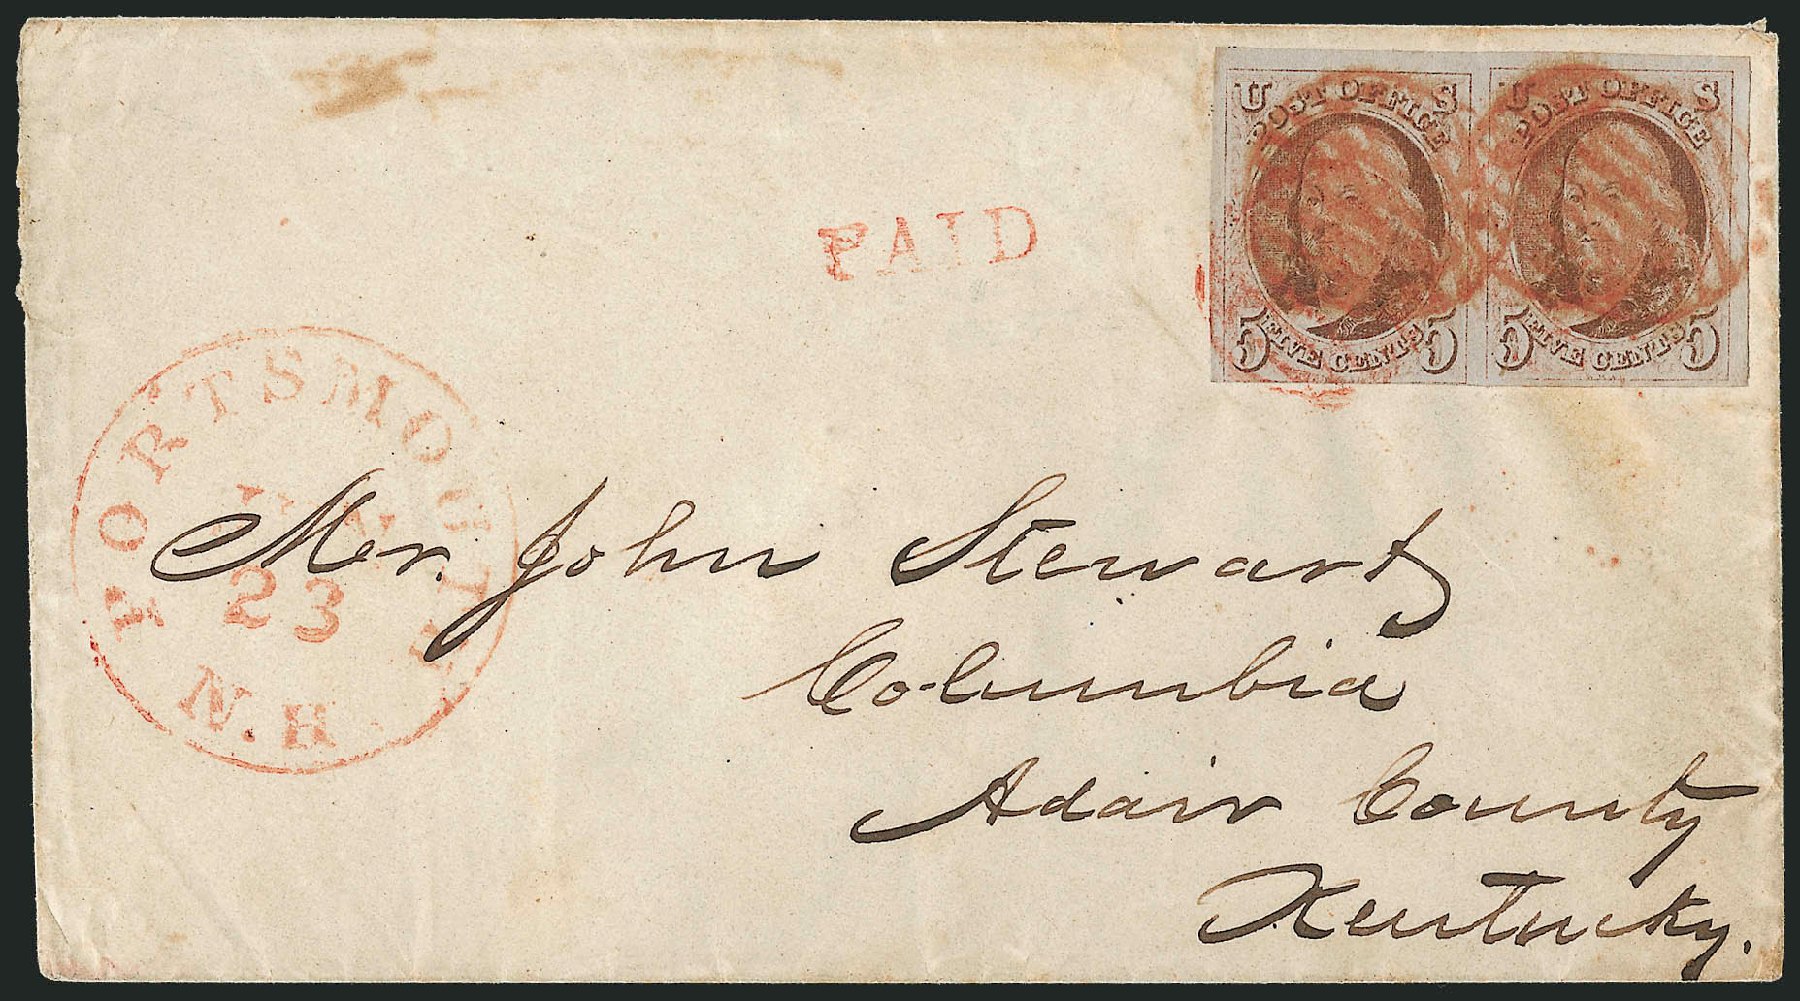 U S U S
POST OFFICE POST OFFICE
5 FIVE CENTS 5 5 FIVE CENTS 5
PAID
PORTSMOUTH
23
N.H
Mr. John Stewart
Columbia
Adair County
Kentucky.